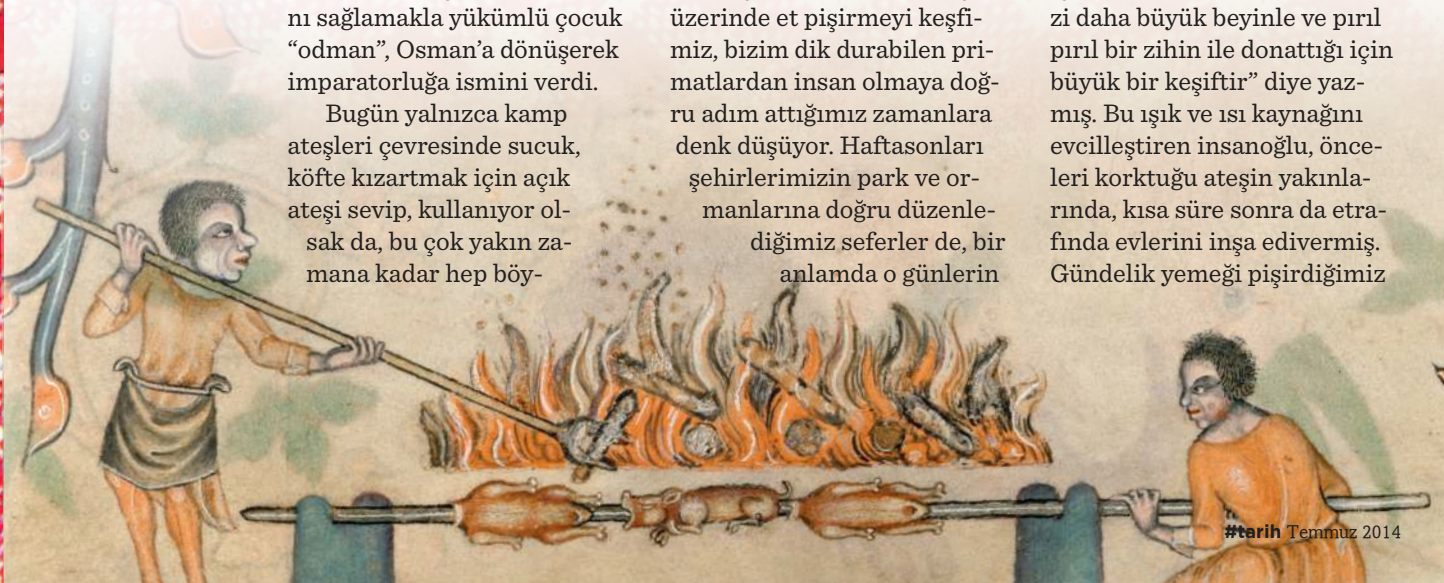 nı sağlamakla yükümlü çocuk
“odman”, Osman’a dönüşerek
imparatorluğa ismini verdi.
Bugün yalnızca kamp
ateşleri çevresinde sucuk,
köfte kızartmak için açık
ateşi sevip, kullanıyor ol-
sak da, bu çok yakın za-
mana kadar hep böy-
üzerinde et pişirmeyi keşfi-
miz, bizim dik durabilen pri-
matlardan insan olmaya doğ-
ru adım attığımız zamanlara
denk düşüyor. Haftasonları
şehirlerimizin park ve or-
manlarına doğru düzenle-
diğimiz seferler de, bir
anlamda o günlerin
zi daha büyük beyinle ve pırıl
pırıl bir zihin ile donattığı için
büyük bir keşiftir” diye yaz-
mış. Bu ışık ve ısı kaynağını
evcilleştiren insanoğlu, önce-
leri korktuğu ateşin yakınla-
rında, kısa süre sonra da etra-
fında evlerini inşa edivermiş.
Gündelik yemeği pişirdiğimiz
#tarih Temmuz 2014